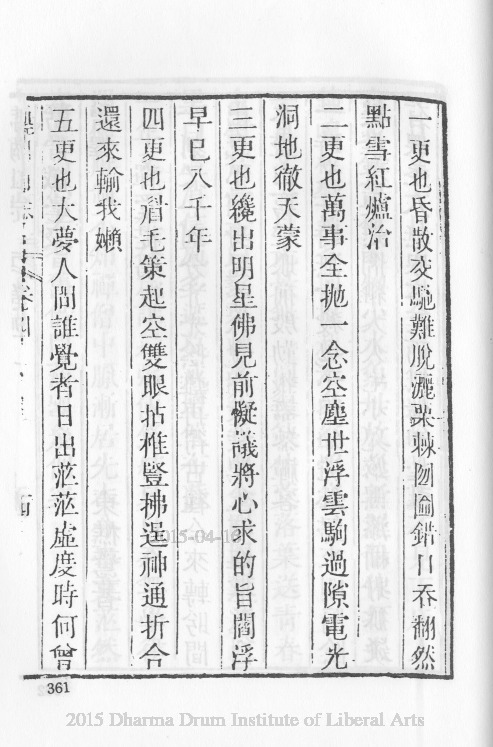 一更也昏散交馳難脫灑栗棘囫圇錯口吞翻然
點雪紅爐冶
二更也萬事全拋一念空塵世浮雲駒過隙電光
洞地徹天蒙
三更也纔出明星佛見前擬議將心求的旨閻浮
早已八千年
四更也眉毛策起空雙眼拈椎豎拂逞神通折合
還來輸我嬾
五更也大夢人間誰覺者日出茫茫虛度時何曾
361
2015-04-10
2015 Dharma Drum Institute of Liberal Arts